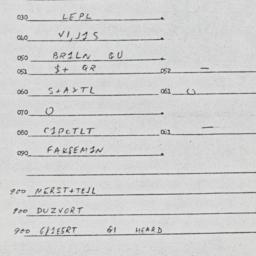 030 LEPL
040 VI,JIS
050 BRILN GU
051 $+ GR 052 —
060 S+AXTL 061 O
070 O
080 CIPCTLT 061 —
090 FAKSEMIN
900 MERST+TEJL
900 DUZVORT
900 G/IESRT GI HEARD